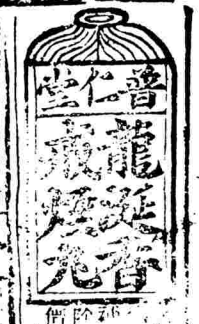 普仁堂
龍涎香
戒烟丸